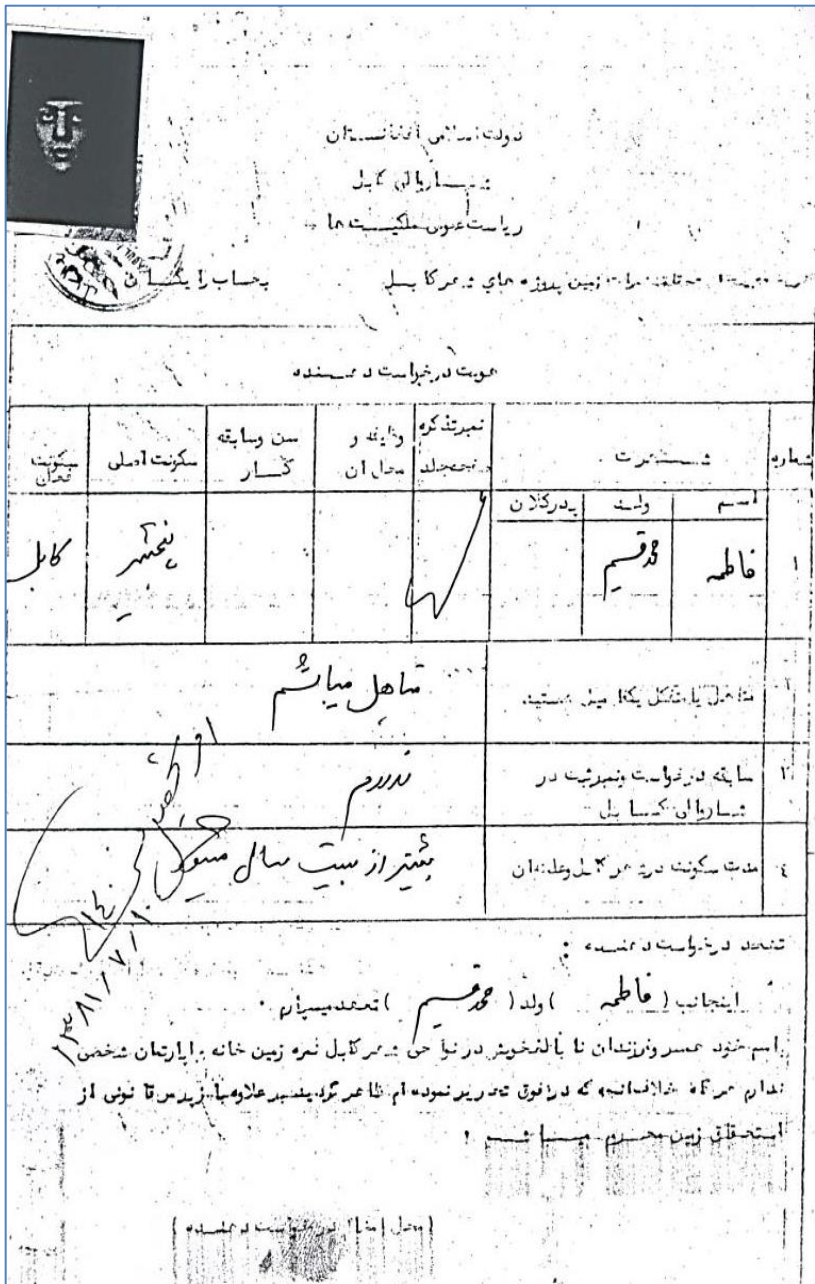 دولت اسلامی افغانستان
شاروالی کابل
ریاست عمومی ملکیت ها
زمین پروژه های شهر کابل بحساب رایگان
هویت درخواست دهنده
شماره شهرت نمبر تذکره وظیفه و محل آن سن وسابقه کار سکونت اصلی سکونت فعلی
اسم ولد پدرکلان
۱ فاطمه محمد قسیم پنجشیر کابل
متاهل میباشم
۳ سابقه درخواست ونمبر ثبت در شاروالی کابل ندارم
۴ مدت سکونت در شهر کابل بیشتر از بیست سال میشود
۱۳۸۱/۷/۱۰
تعهد درخواست دهنده :
اینجانب ( فاطمه ) ولد ( محمد قسیم ) تعهد میسپارم .
اسم خود همسر وفرزندان نا بالغ خویش در نواحی شهر کابل نمره زمین خانه و اپارتمان شخصی
ندارم هر گاه خلاف آنچه که در فوق تحریر نموده ام ظاهر گردید علاوه باز پرس قانونی از
استحقاق زمین محروم میباشم .
( محل امضا درخواست دهنده )